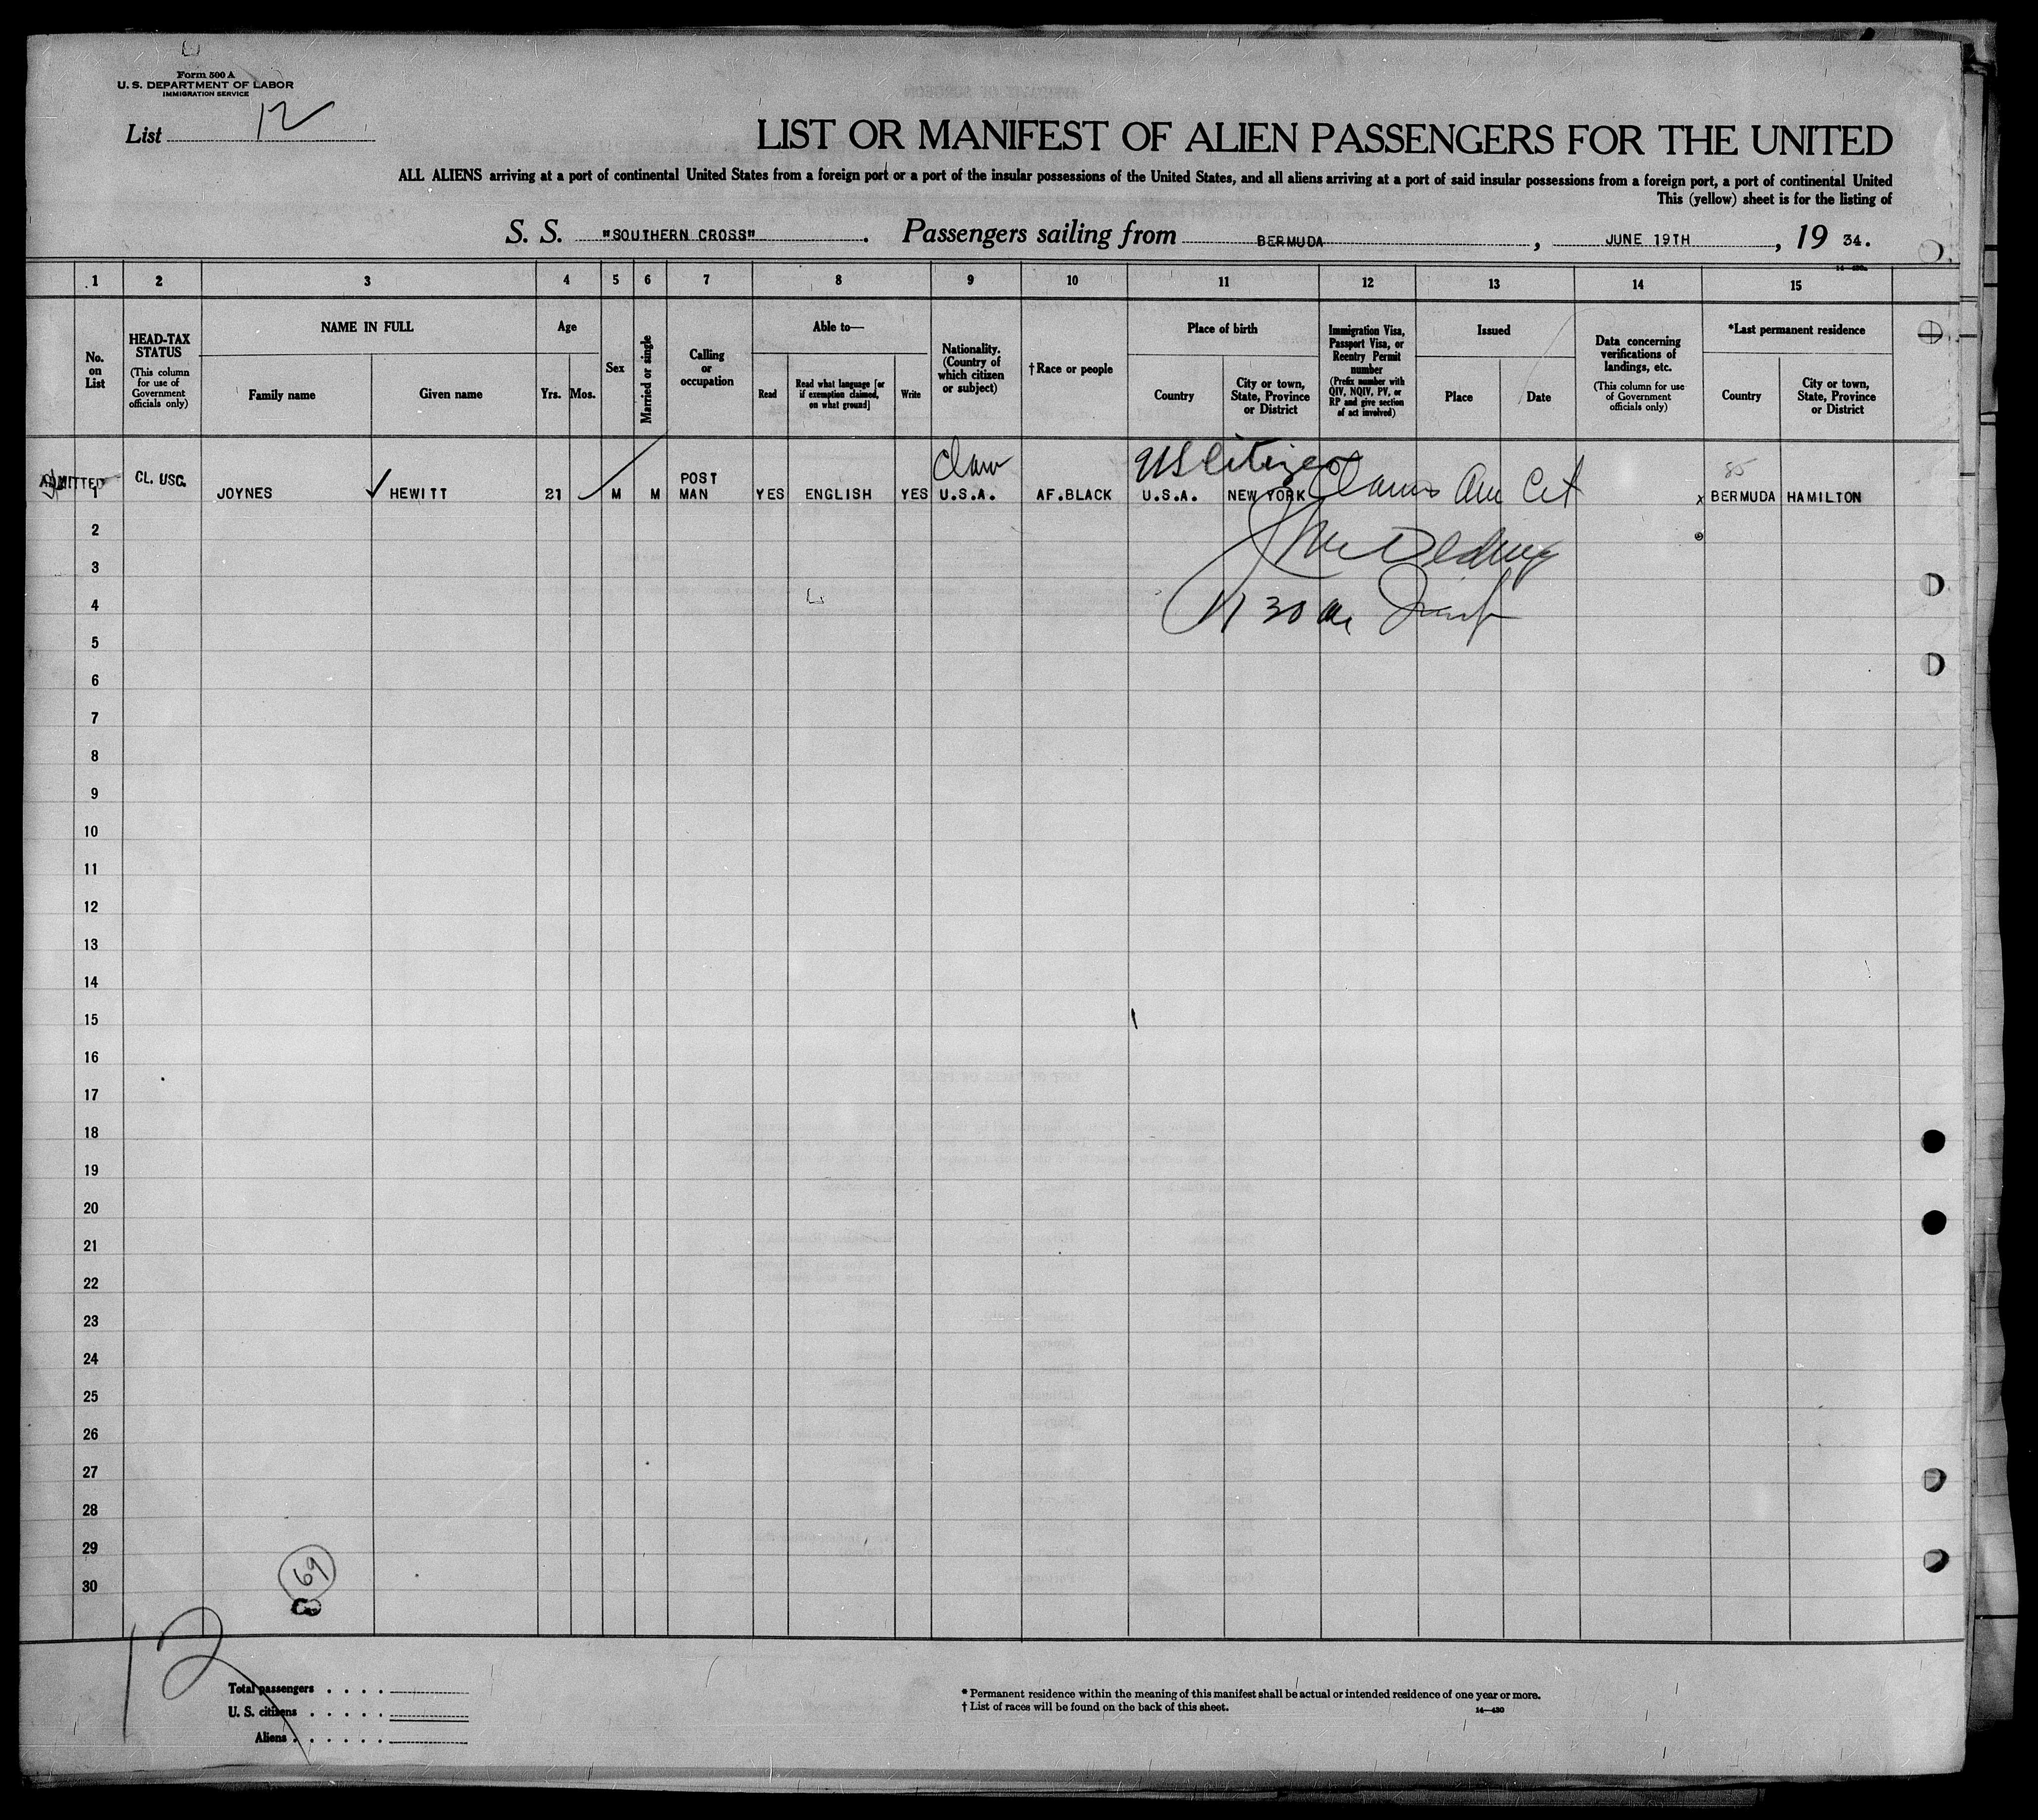 Form 500 A
U. S. DEPARTMENT OF LABOR
IMMIGRATION SERVICE
List 12
LIST OR MANIFEST OF ALIEN PASSENGERS FOR THE UNITED
ALL ALIENS arriving at a port of continental United States from a foreign port or a port of the insular possessions of the United States, and all aliens arriving at a port of said insular possessions from a foreign port, a port of continental United
This (yellow) sheet is for the listing of
S. S. "SOUTHERN CROSS". Passengers sailing from BERMUDA, JUNE 19TH, 19 34.
14—430
1 2 3 4 5 6 7 8 9 10 11 12 13 14 15
No. on List
HEAD-TAX STATUS
(This column for use of Government officials only)
NAME IN FULL
Family name
Given name
Age
Yrs. Mos.
Sex
Married or single
Calling or occupation
Able to—
Read
Read what language [or if exemption claimed, on what ground]
Write
Nationality. (Country of which citizen or subject)
†Race or people
Place of birth
Country
City or town, State, Province or District
Immigration Visa, Passport Visa, or Reentry Permit number
(Prefix number with QIV, NQIV, PV, or RP and give section of act involved)
Issued
Place
Date
Data concerning verifications of landings, etc.
(This column for use of Government officials only)
*Last permanent residence
Country
City or town, State, Province or District
Claim US Citizen
85
ADMITTED 1 CL. USC. JOYNES HEWITT 21 M M POST MAN YES ENGLISH YES U.S.A. AF.BLACK U.S.A. NEW YORK Claims Am Cit x BERMUDA HAMILTON
2
3
4
11 30 a
5
6
7
8
9
10
11
12
13
14
15
16
17
18
19
20
21
22
23
24
25
26
27
28
29
30
69
12
Total passengers . . . .
U. S. citizens . . . . .
Aliens . . . . . .
* Permanent residence within the meaning of this manifest shall be actual or intended residence of one year or more.
† List of races will be found on the back of this sheet.
14—430